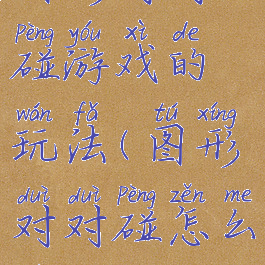 pèng yóu xì de
碰游戏的
wán fǎ tú xíng
玩法(图形
duì duì pèng zěn me
对对碰怎么